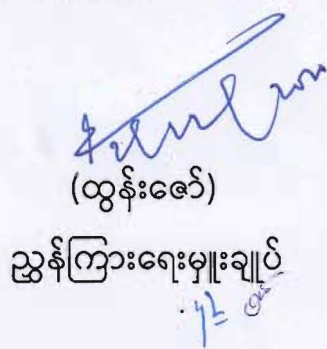 (ထွန်းဇော်)
ညွှန်ကြားရေးမှူးချုပ်